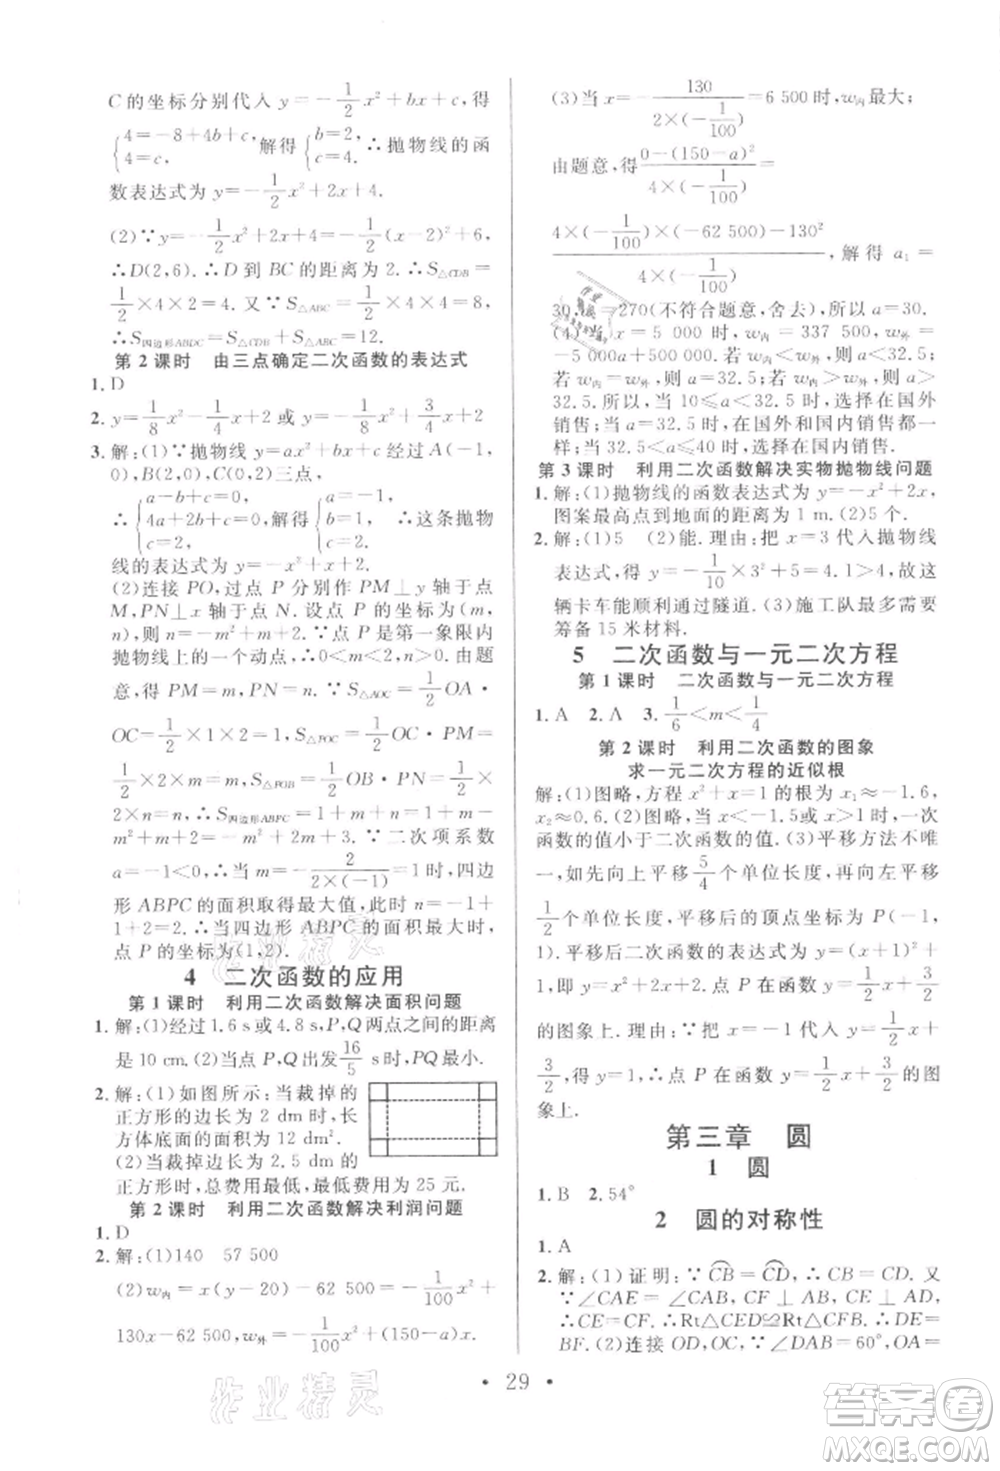 C的坐标分别代入 y=-\frac{1}{2}x²+bx+c,得
{4=-8+4b+c, c=4. 解得{b=2, c=4. ∴抛物线的函
数表达式为 y=-\frac{1}{2}x²+2x+4.
(2)∵y=-\frac{1}{2}x²+2x+4=-\frac{1}{2}(x-2)²+6,
∴D(2,6).∴D 到 BC 的距离为 2.∴S△CDB=
\frac{1}{2}×4×2=4.又∵S△ABC=\frac{1}{2}×4×4=8,
∴S四边形ABDC=S△CDB+S△ABC=12.
第 2 课时 由三点确定二次函数的表达式
1. D
2. y=\frac{1}{8}x²-\frac{1}{4}x+2 或 y=-\frac{1}{8}x²+\frac{3}{4}x+2
3. 解:(1)∵抛物线 y=ax²+bx+c 经过 A(-1,
0),B(2,0),C(0,2)三点,
∴{a-b+c=0, 4a+2b+c=0, c=2. 解得{a=-1, b=1, c=2. ∴这条抛物
线的表达式为 y=-x²+x+2.
(2)连接 PO,过点 P 分别作 PM⊥y 轴于点
M,PN⊥x 轴于点 N.设点 P 的坐标为(m,
n),则 n=-m²+m+2.∵点 P 是第一象限内
抛物线上的一个动点,∴m>0,n>0.由题
意,得 PM=m,PN=n.∵S△AOC=\frac{1}{2}OA·
OC=\frac{1}{2}×1×2=1,S△POC=\frac{1}{2}OC·PM=
\frac{1}{2}×2×m=m,S△POB=\frac{1}{2}OB·PN=\frac{1}{2}×
2×n=n,∴S四边形ABPC=S△AOC+S△POC+S△POB=1+
m+n=-m²+2m+3.∵二次项系数
a=-1<0,∴当 m=-\frac{2}{2×(-1)}=1时,四边
形 ABPC 的面积取得最大值,此时 n=-1+1+
2=2.∴当四边形 ABPC 的面积最大时,
点 P 的坐标为(1,2).
4 二次函数的应用
第 1 课时 利用二次函数解决面积问题
1. 解:(1)经过 1.6 s或 4.8 s,P,Q两点之间的距离
是 10 cm.(2)当点 P,Q 出发\frac{16}{5} s时,PQ最小.
2. 解:(1)如图所示:当裁掉的
正方形的边长为 2 dm 时,长
方体底面的面积为 12 dm².
(2)当裁掉边长为 2.5 dm 的
正方形时,总费用最低,最低费用为 25 元.
第 2 课时 利用二次函数解决利润问题
1. D
2. 解:(1)140 57 500
(2)w内=x(y-20)-62 500=-\frac{1}{100}x²+
130x-62 500,w外=-\frac{1}{100}x²+(150-a)x.
(3)当 x=-\frac{130}{2×(-\frac{1}{100})}=6 500 时,w内最大;
由题意,得\frac{0-(150-a)²}{4×(-\frac{1}{100})}=
\frac{4×(-\frac{1}{100})×(-62 500)-130²}{4×(-\frac{1}{100})},解得 a₁=
30,a₂=270(不符合题意,舍去),所以 a=30.
(4)当 x=5 000 时,w内=337 500,w外=
-5 000a+500 000.若 w内<w外,则 a<32.5;
若 w内=w外,则 a=32.5;若 w内>w外,则 a>
32.5.所以,当 10≤a<32.5 时,选择在国外
销售;当 a=32.5 时,在国外和国内销售都一
样;当 32.5<a≤40 时,选择在国内销售.
第 3 课时 利用二次函数解决实物抛物线问题
1. 解:(1)抛物线的函数表达式为 y=-x²+2x,
图案最高点到地面的距离为 1 m.(2)5 个.
2. 解:(1)5 (2)能.理由:把 x=3 代入抛物线
表达式,得 y=-\frac{1}{10}×3²+5=4.1>4,故这
辆卡车能顺利通过隧道.(3)施工队最多需要
筹备 15 米材料.
5 二次函数与一元二次方程
第 1 课时 二次函数与一元二次方程
1. A 2. A 3. \frac{1}{6}<m<\frac{1}{4}
第 2 课时 利用二次函数的图象
求一元二次方程的近似根
解:(1)图略,方程 x²+x=1 的根为 x₁≈-1.6,
x₂≈0.6.(2)图略,当 x<-1.5或x>1时,一次
函数的值小于二次函数的值.(3)平移方法不唯
一,如先向上平移\frac{5}{4}个单位长度,再向左平移
\frac{1}{2}个单位长度,平移后的顶点坐标为 P(-1,
1).平移后二次函数的表达式为 y=(x+1)²+
1,即 y=x²+2x+2.点 P 在函数 y=\frac{1}{2}x+\frac{3}{2}
的图象上.理由:∵把 x=-1 代入 y=\frac{1}{2}x+
\frac{3}{2},得 y=1,∴点 P 在函数 y=\frac{1}{2}x+\frac{3}{2}的图
象上.
第三章 圆
1 圆
1. B 2. 54°
2 圆的对称性
1. A
2. 解:(1)证明:∵CB=CD,∴CB=CD.又
∵∠CAE=∠CAB,CF⊥AB,CE⊥AD,
∴CE=CF.∴Rt△CED≌Rt△CFB.∴DE=
BF.(2)连接 OD,∵∠DAB=60°,∴∠DOB=
· 29 ·
作业精灵
作业精灵
答案圈
MXQE.COM